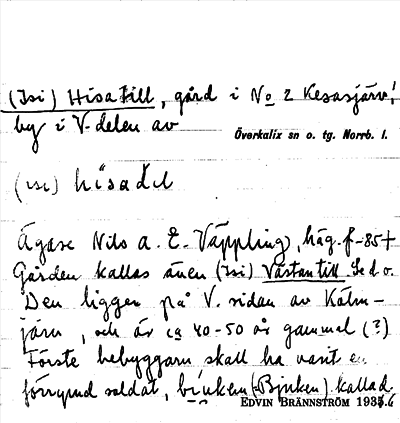 (Isi) Hisatill, gård i No 2 Kesasjärv,
by i V. delen av
Överkalix sn o. tg. Norrb. l.
(isi) hisadel
Ägare Nils A. E. Väppling, häg. f. -85+
Gården kallas även (Isi) Västantill. Se d. o.
Den ligger på V. sidan av Kälm-
järv, och är ca 40-50 år gammal (?)
Förste bebyggaren skall ha varit en
förrymd soldat, (Bjuken) kallad
EDVIN BRÄNNSTRÖM 193